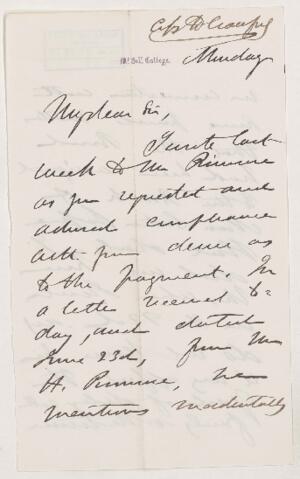 McGill College.
Monday
My dear Sir,
I wrote last
week to Mr Primrose
as you requested and
advised compliance
with your desire as
to the payment. In
a letter received to-
day, and dated
June 23d, from Mr
H. Primrose, he
mentions incidentally